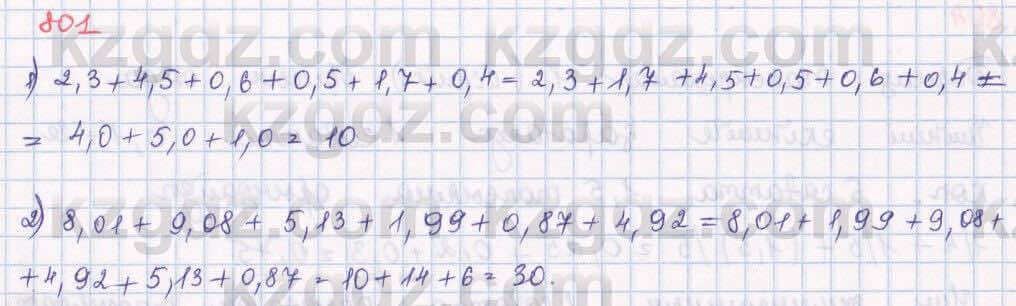 801
1) 2,3+4,5+0,6+0,5+1,7+0,4=2,3+1,7+4,5+0,5+0,6+0,4=
= 4,0+5,0+1,0= 10
2) 8,01+ 9,08+ 5,13+1,99+0,87+4,92=8,01+1,99+9,08+
+4,92+5,13+0,87=10+14+6= 30.
kzgdz.com